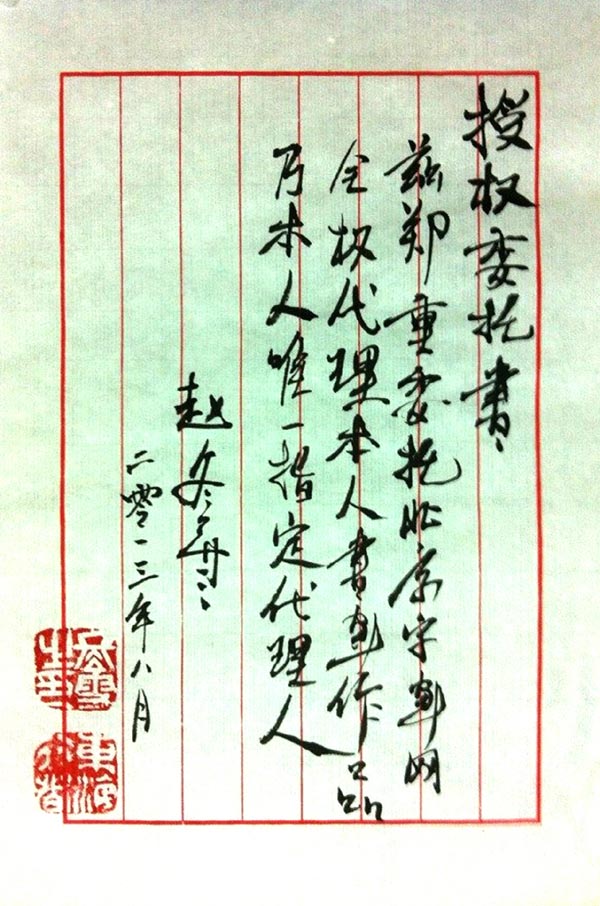 授权委托書
兹郑重委托北京字画网
全权代理本人書画作品
乃本人唯一指定代理人
二零一三年八月